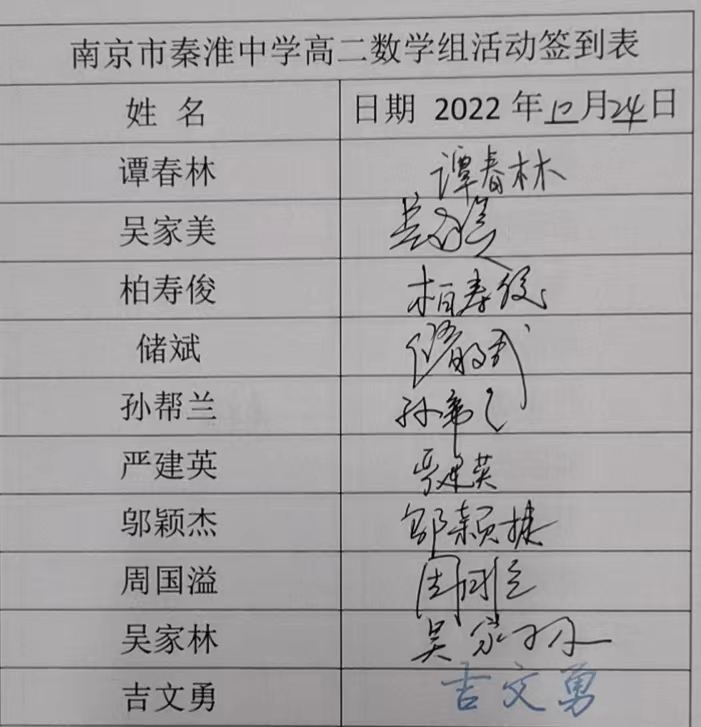 南京市秦淮中学高二数学组活动签到表
姓 名 日期 2022 年12月24日
谭春林 谭春林
吴家美 吴家美
柏寿俊 柏寿俊
储斌 储斌
孙帮兰 孙帮兰
严建英 严建英
邬颖杰 邬颖捷
周国溢 周国溢
吴家林 吴家林
吉文勇 吉文勇